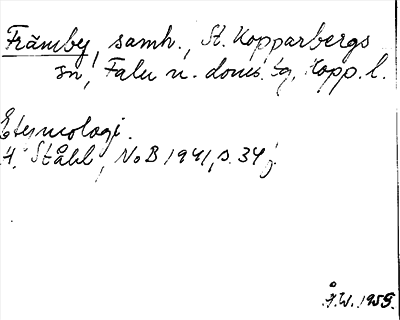 Främby, samh., St. Kopparbergs
sn, Falu n. doms. tg, Kopp. l.
Etymologi.
H. Ståhl, NoB 1941, s. 34 f.
Å.W. 1959.